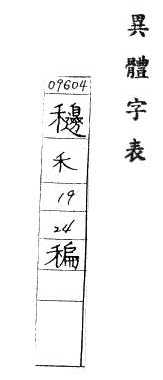 異體字表
09604
禾
19
24
稨